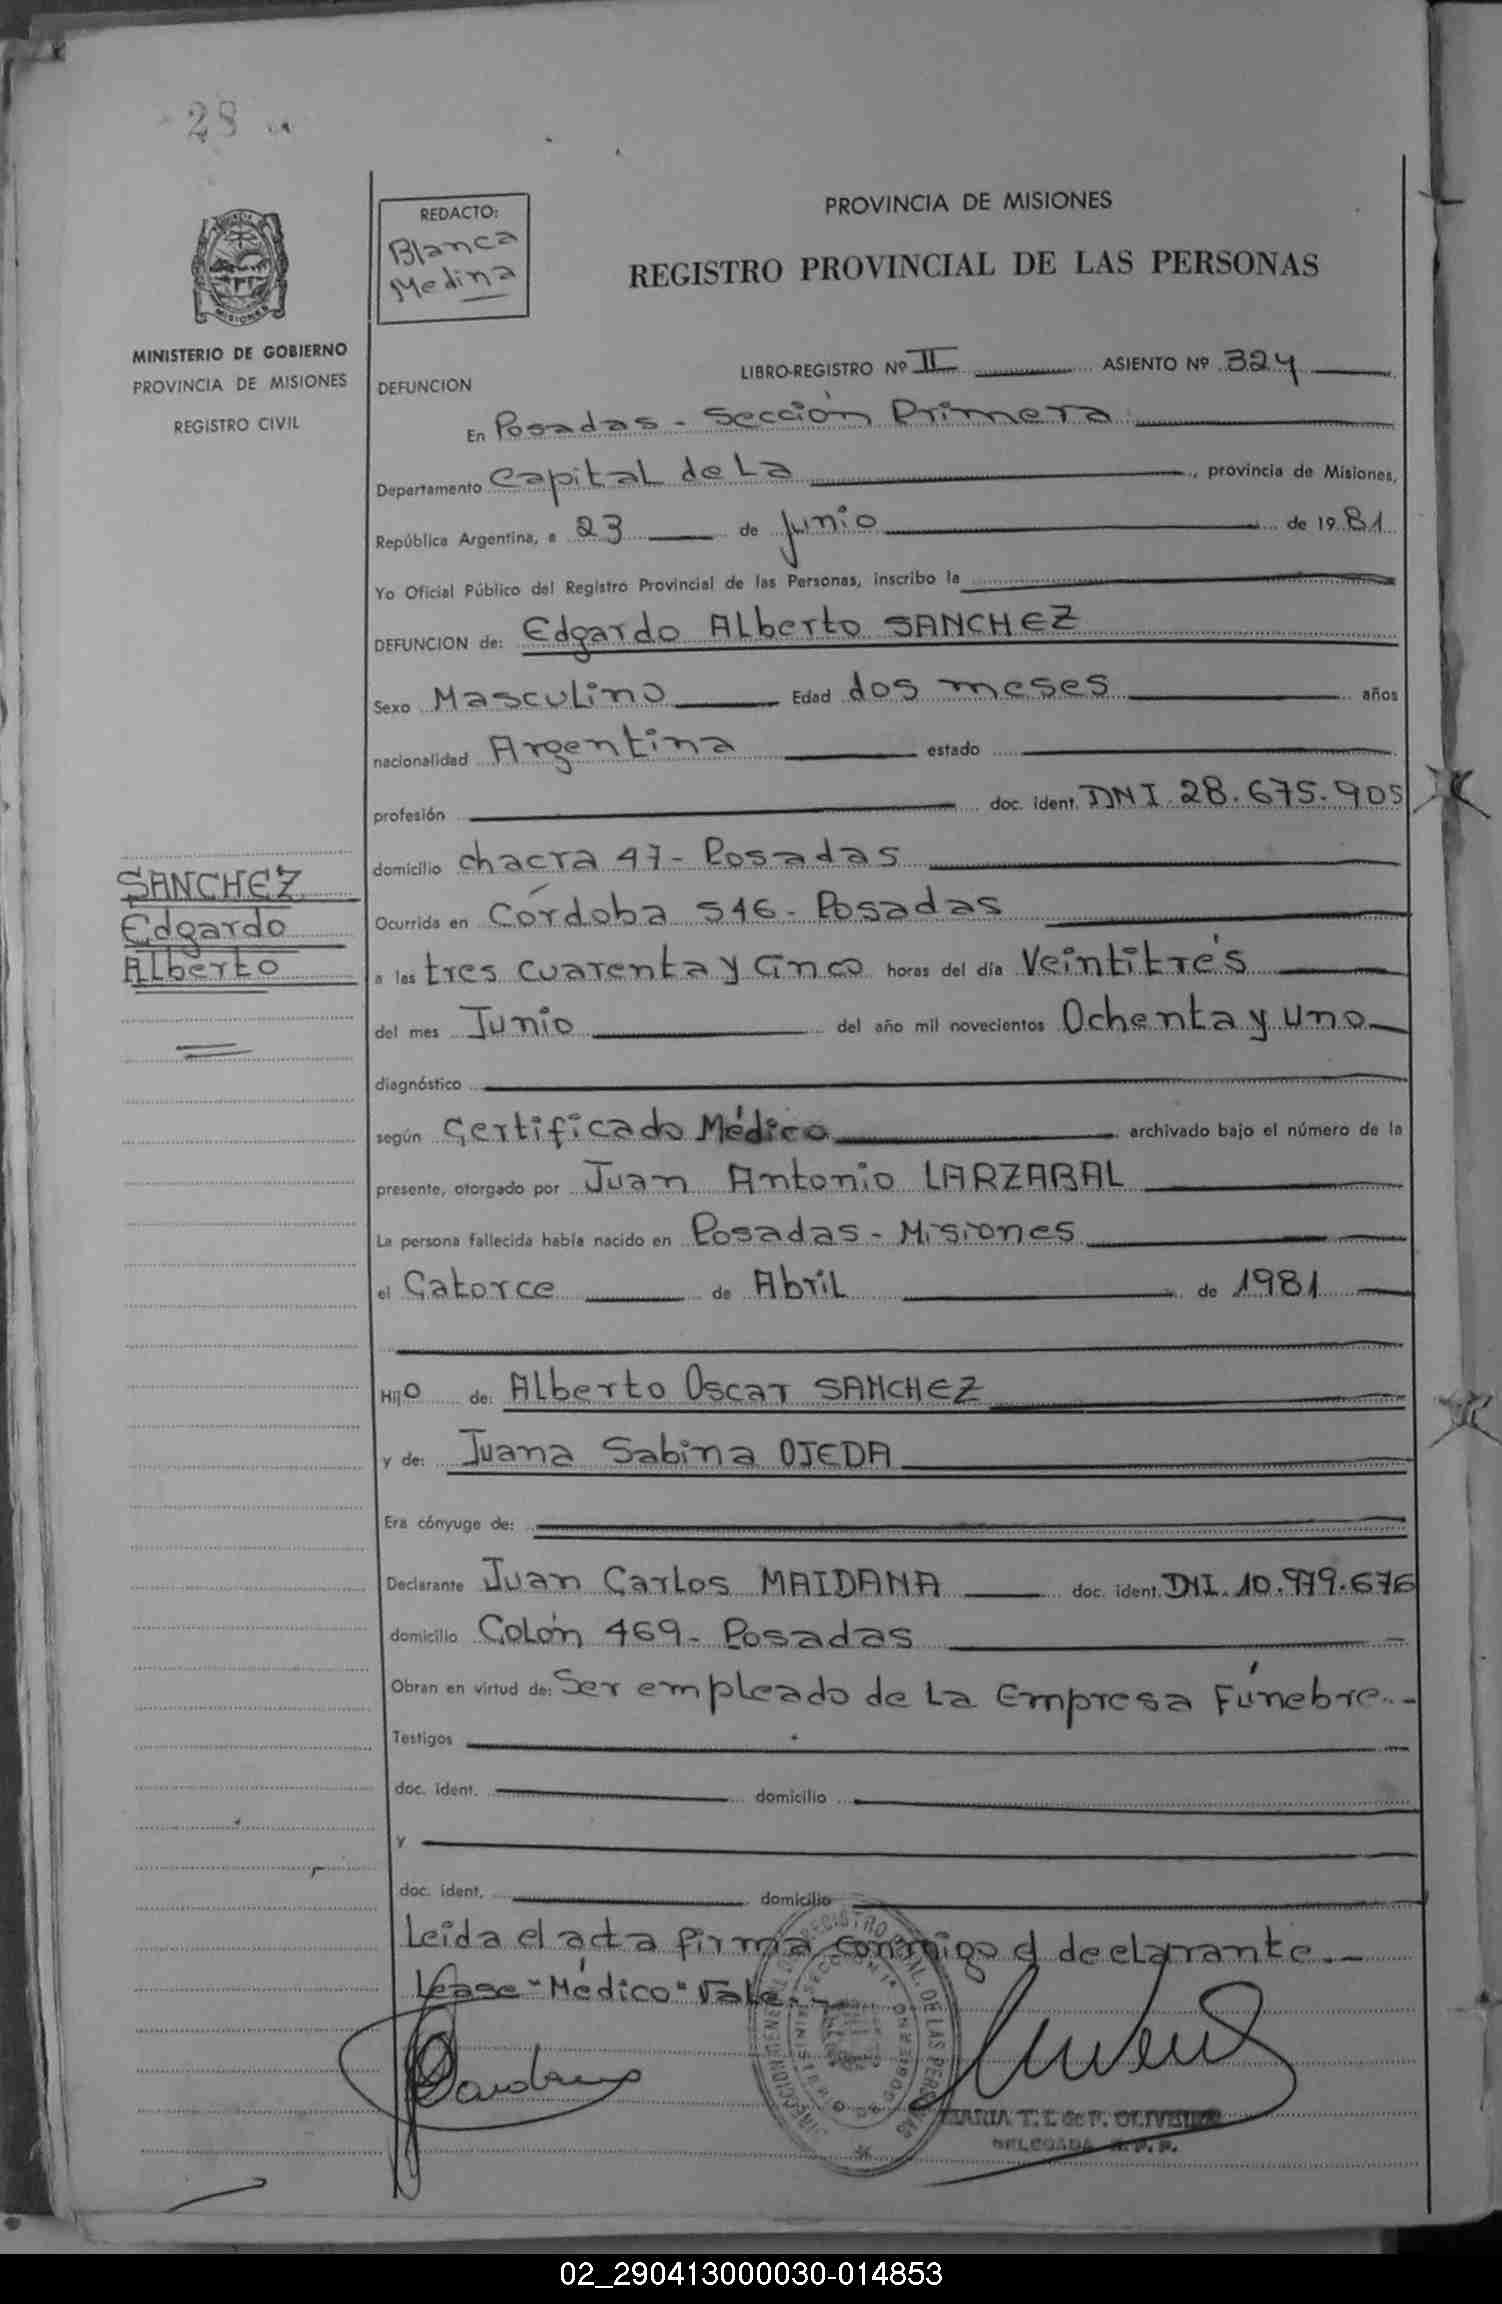 28
REDACTO:
Blanca
Medina
PROVINCIA DE MISIONES
REGISTRO PROVINCIAL DE LAS PERSONAS
MISIONES
MINISTERIO DE GOBIERNO
PROVINCIA DE MISIONES
REGISTRO CIVIL
DEFUNCION
LIBRO-REGISTRO Nº II ASIENTO Nº 324
En Posadas - Sección Primera
Departamento Capital de La , provincia de Misiones,
República Argentina, a 23 de Junio de 1981
Yo Oficial Público del Registro Provincial de las Personas, inscribo la
DEFUNCION de: Edgardo Alberto SANCHEZ
Sexo Masculino Edad dos meses años
nacionalidad Argentina estado
profesión doc. ident. DNI 28.675.905
domicilio chacra 47 - Posadas
SANCHEZ
Edgardo
Alberto
Ocurrida en Córdoba 546 - Posadas
a las tres cuarenta y cinco horas del día Veintitrés
del mes Junio del año mil novecientos Ochenta y uno
diagnóstico
según Certificado Médico archivado bajo el número de la
presente, otorgado por Juan Antonio LARZABAL
La persona fallecida había nacido en Posadas - Misiones
el Catorce de Abril de 1981
Hijo de: Alberto Oscar SANCHEZ
y de: Juana Sabina OJEDA
Era cónyuge de:
Declarante Juan Carlos MAIDANA doc. ident. DNI. 10.979.676
domicilio Colón 469 - Posadas
Obran en virtud de: Ser empleado de La Empresa Fúnebre.-
Testigos
doc. ident. domicilio
y
doc. ident. domicilio
Leída el acta firma conmigo el declarante.-
Léase "Médico" Vale.-
MARIA T. L. de F. OLIVEIRA
DELEGADA R. P. P.
02_290413000030-014853